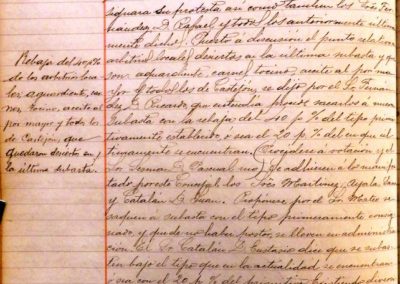 Rebaja del 40 p%
de los arbitrios loca
les aguardiente, car
nes tocino, aceite al
por mayor y todo lo
de Castejón, que
quedaron desierto en
la última subasta.
su protesta asi como tambien los Sres Fer
nandez D. Rafael y todos los anteriormente última
mente dichos. Puesto á discusión el punto relativo
arbitrios locales desiertos en la última subasta y que
son, aguardiente, carne, tocino, aceite al por ma
yor y todos los de Castejón, se dijo por el Sr. Fernan
dez D. Ricardo que entendia procede sacarlos á nueva
Subasta con la rebaja del 40 p% del tipo primi
tivamente establecido ó sea el 20 p% del en que úl
timamente se encuentran. Procédese á votación y el
Sr. D. Pascual se adhieren á lo manifes
tado por este Concejal los Sres Martinez, Ayala,
y Catalán D. Juan. Propone por el Sr. Mateo se
saquen á subasta con el tipo primeramente consig
nado, y que de no haber postor, se lleven en administra
ción. El Sr. Catalán D. Eustasio dice que se subas
ten bajo el tipo que en la actualidad se encuentran
o sea con el 20 p% del primitivo.